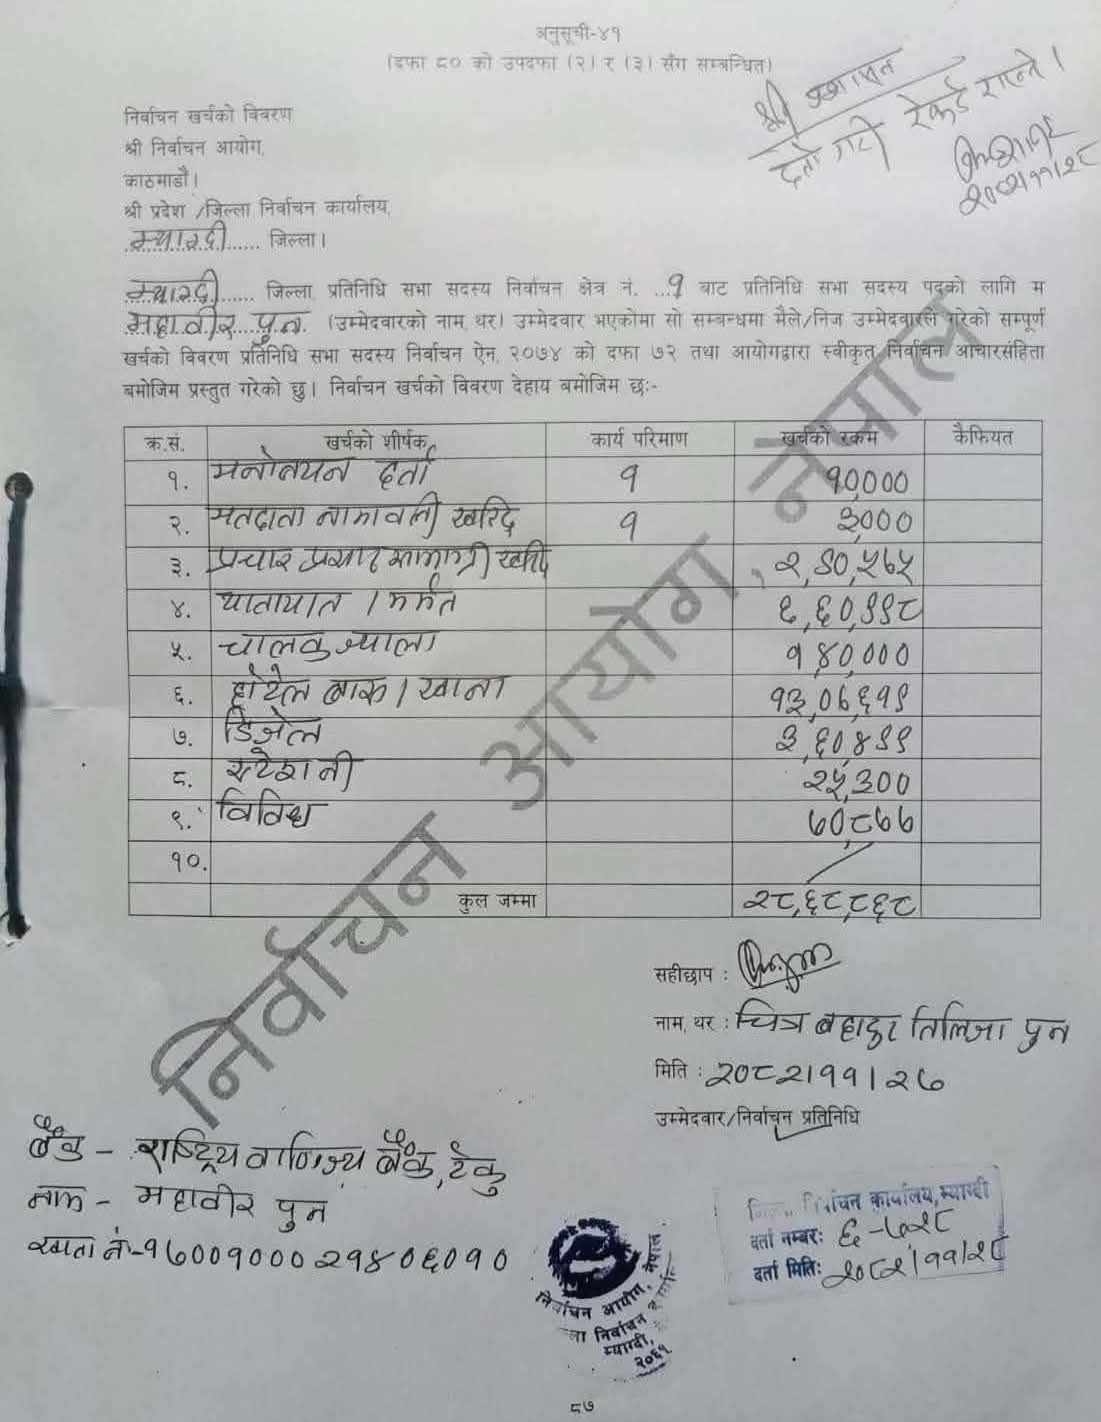 अनुसूची-४१
(दफा ८० को उपदफा (२) र (३) सँग सम्बन्धित)
दर्ता गरी रेकर्ड राख्ने।
२०८२।११।२८
निर्वाचन खर्चको विवरण
श्री निर्वाचन आयोग,
काठमाडौं।
श्री प्रदेश /जिल्ला निर्वाचन कार्यालय,
म्याग्दी जिल्ला।
म्याग्दी जिल्ला, प्रतिनिधि सभा सदस्य निर्वाचन क्षेत्र नं. १ बाट प्रतिनिधि सभा सदस्य पदको लागि म
महावीर पुन (उम्मेदवारको नाम, थर) उम्मेदवार भएकोमा सो सम्बन्धमा मैले/निज उम्मेदवारले गरेको सम्पूर्ण
खर्चको विवरण प्रतिनिधि सभा सदस्य निर्वाचन ऐन, २०७४ को दफा ७२ तथा आयोगद्वारा स्वीकृत निर्वाचन आचारसंहिता
बमोजिम प्रस्तुत गरेको छु। निर्वाचन खर्चको विवरण देहाय बमोजिम छः-
क्र.सं. खर्चको शीर्षक कार्य परिमाण खर्चको रकम कैफियत
१. मनोनयन दर्ता १ १०,०००
२. मतदाता नामावली खरिद १ ३,०००
३. प्रचार प्रसार सामाग्री खरिद २,९०,५७५
४. यातायात / मर्मत ६,६०,९९८
५. चालक ज्याला १,४०,०००
६. होटेल बास / खाना १३,०७,६१९
७. डिजेल ३,६०,४९९
८. स्टेशनरी २५,३००
९. विविध ७०,८७७
१०.
कुल जम्मा २८,६८,८६८
निर्वाचन आयोग, नेपाल
सहीछाप :
नाम, थर : चित्र बहादुर तिलिजा पुन
मिति : २०८२।११।२७
उम्मेदवार/निर्वाचन प्रतिनिधि
बैंक - राष्ट्रिय वाणिज्य बैंक, टेकु
नाम - महावीर पुन
खाता नं - १७००१०००२१४०६०१०
जिल्ला निर्वाचन कार्यालय, म्याग्दी
दर्ता नम्बर: ६-७२८
दर्ता मिति: २०८२।११।२८
निर्वाचन आयोग, नेपाल
जिल्ला निर्वाचन कार्यालय
म्याग्दी,
८७